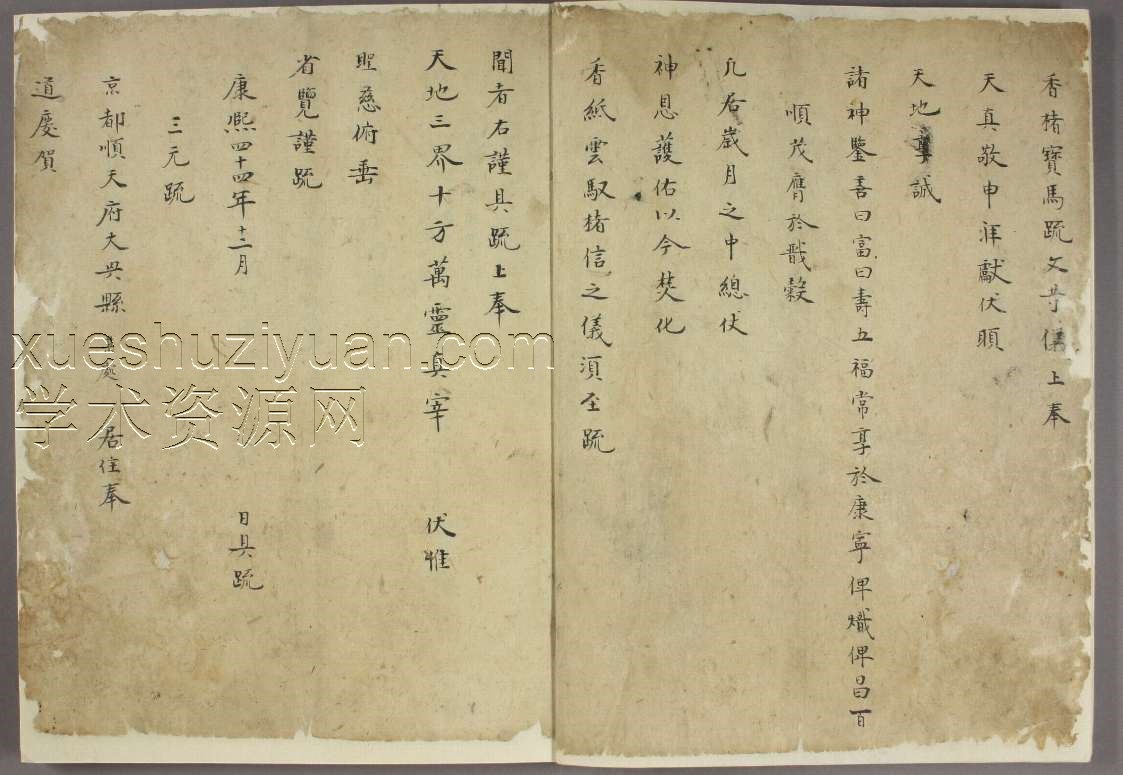 香楮寶馬疏文等儀上奉
天真敬申詳獻伏願
天地 誠
諸神鑒善曰富曰壽五福常享於康寧俾熾俾昌百
順茂膺於戩穀
凡居歲月之中總伏
神恩護佑以今焚化
香紙雲馭楮信之儀湏至疏
聞者右謹具疏上奉
天地三界十方萬靈真宰 伏惟
聖慈俯垂
省覽謹疏
康熙四十四年十二月 日具疏
三元疏
京都順天府大興縣 居住奉
道慶賀
xueshuziyuan.com
学术资源网